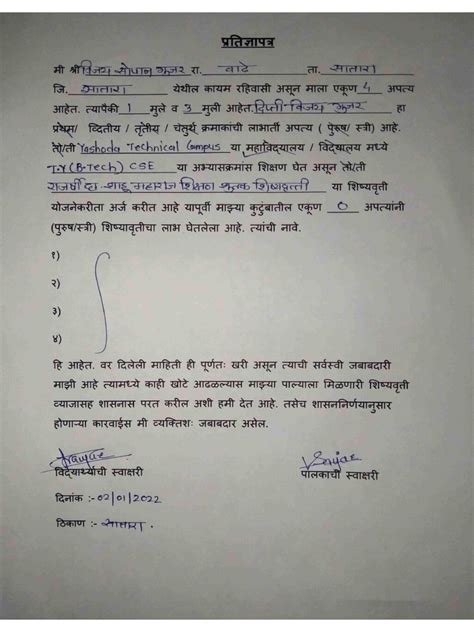 प्रतिज्ञापत्र
मी श्री विजय सोपान गुजर रा. वाढे ता. सातारा
जि. सातारा येथील कायम रहिवासी असून माला एकूण 4 अपत्य
आहेत. त्यापैकी 1 मुले व 3 मुली आहेत. दिप्ती विजय गुजर हा
प्रथम/ व्दितीय / तृतीय / चतुर्थ क्रमाकांची लाभार्ती अपत्य ( पुरुष/ स्त्री) आहे.
तो/ती Yashoda Technical Campus या महाविद्यालय / विद्यालय मध्ये
T.Y (B-Tech) CSE या अभ्यासक्रमांस शिक्षण घेत असून तो/ती
राजर्षी शाहू महाराज शिक्षण शुल्क शिष्यवृत्ती या शिष्यवृत्ती
योजनेकरीता अर्ज करीत आहे यापूर्वी माझ्या कुटुंबातील एकूण 0 अपत्यांनी
(पुरुष/स्त्री) शिष्यावृतीचा लाभ घेतलेला आहे. त्यांची नावे.
१)
२)
३)
४)
हि आहेत. वर दिलेली माहिती ही पूर्णतः खरी असून त्याची सर्वस्वी जबाबदारी
माझी आहे त्यामध्ये काही खोटे आढळल्यास माझ्या पाल्याला मिळणारी शिष्यवृत्ती
व्याजासह शासनास परत करील अशी हमी देत आहे. तसेच शासननिर्णयानुसार
होणाऱ्या कारवाईस मी व्यक्तिशः जबाबदार असेल.
विद्यार्थ्याची स्वाक्षरी पालकाची स्वाक्षरी
दिनांक :- 02/01/2022
ठिकाण :- सातारा.